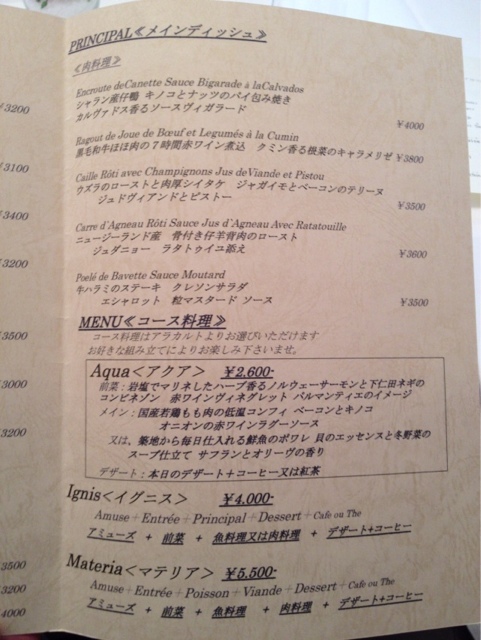 PRINCIPAL≪メインディッシュ≫
≪肉料理≫
Encroute deCanette Sauce Bigarade à laCalvados
シャラン産仔鴨 キノコとナッツのパイ包み焼き
カルヴァドス香るソースヴィガラード
¥4000
Ragout de Joue de Bœuf et Legumés à la Cumin
黒毛和牛ほほ肉の7時間赤ワイン煮込 クミン香る根菜のキャラメリゼ ¥3800
Caille Rôti avec Champignons Jus deViande et Pistou
ウズラのローストと肉厚シイタケ ジャガイモとベーコンのテリーヌ
ジュドヴィアンドとピストー
¥3500
Carre d'Agneau Rôti Sauce Jus d'Agneau Avec Ratatouille
ニュージーランド産 骨付き仔羊背肉のロースト
ジュダニョー ラタトゥイユ添え
¥3600
Poelé de Bavette Sauce Moutard
牛ハラミのステーキ クレソンサラダ
エシャロット 粒マスタード ソース
¥3500
MENU≪コース料理≫
コース料理はアラカルトよりお選びいただけます
お好きな組み立てによりお楽しみ下さいませ。
Aqua＜アクア＞ ¥2.600-
前菜：岩塩でマリネしたハーブ香るノルウェーサーモンと下仁田ネギの
コンビネゾン 赤ワインヴィネグレット パルマンティエのイメージ
メイン：国産若鶏もも肉の低温コンフィ ベーコンとキノコ
オニオンの赤ワインラグーソース
又は、築地から毎日仕入れる鮮魚のポワレ 貝のエッセンスと冬野菜の
スープ仕立て サフランとオリーヴの香り
デザート：本日のデザート＋コーヒー又は紅茶
Ignis＜イグニス＞ ¥4.000-
Amuse＋Entrée＋Principal＋Dessert＋Cafe ou The
アミューズ ＋ 前菜 ＋ 魚料理又は肉料理 ＋ デザート+コーヒー
Materia＜マテリア＞ ¥5.500-
Amuse＋Entrée＋Poisson＋Viande＋Dessert＋Cafe ou The
アミューズ ＋ 前菜 ＋ 魚料理 ＋ 肉料理 ＋ デザート+コーヒー
¥3200
¥3100
¥3400
¥3200
¥3500
¥3000
¥3200
3500
¥3200
4000